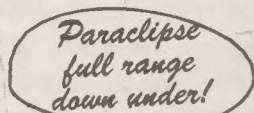 Paraclipse
full range
down under!